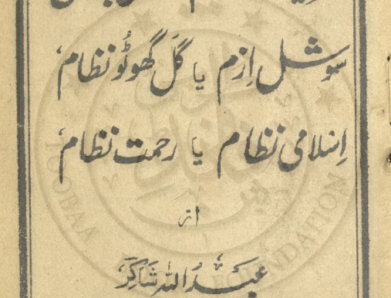 سوشل اِزم یا گَل گھوٹُو نظام
اِسلامی نظام یا رحمت نظام
از
عبدُ اللہ شاکِر
TOOBAA FOUNDATION